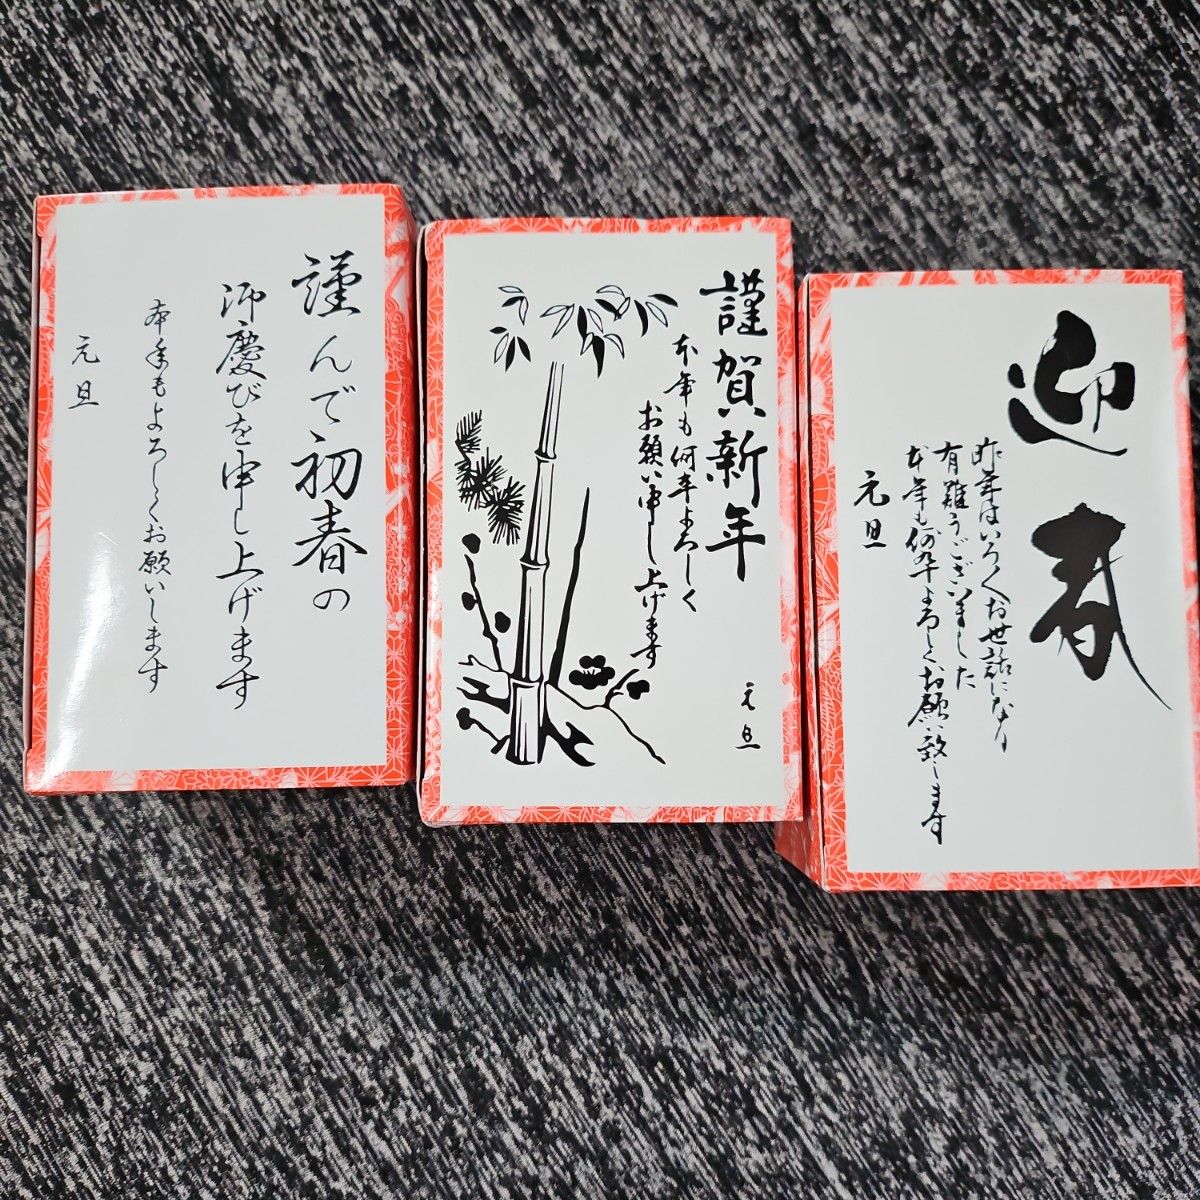 謹んで初春の
御慶びを申し上げます
本年もよろしくお願いします
元旦
謹賀新年
本年も何卒よろしく
お願い申し上げます
元旦
迎春
昨年はいろくお世話になり
有難うございました
本年も何卒よろしくお願い致します
元旦